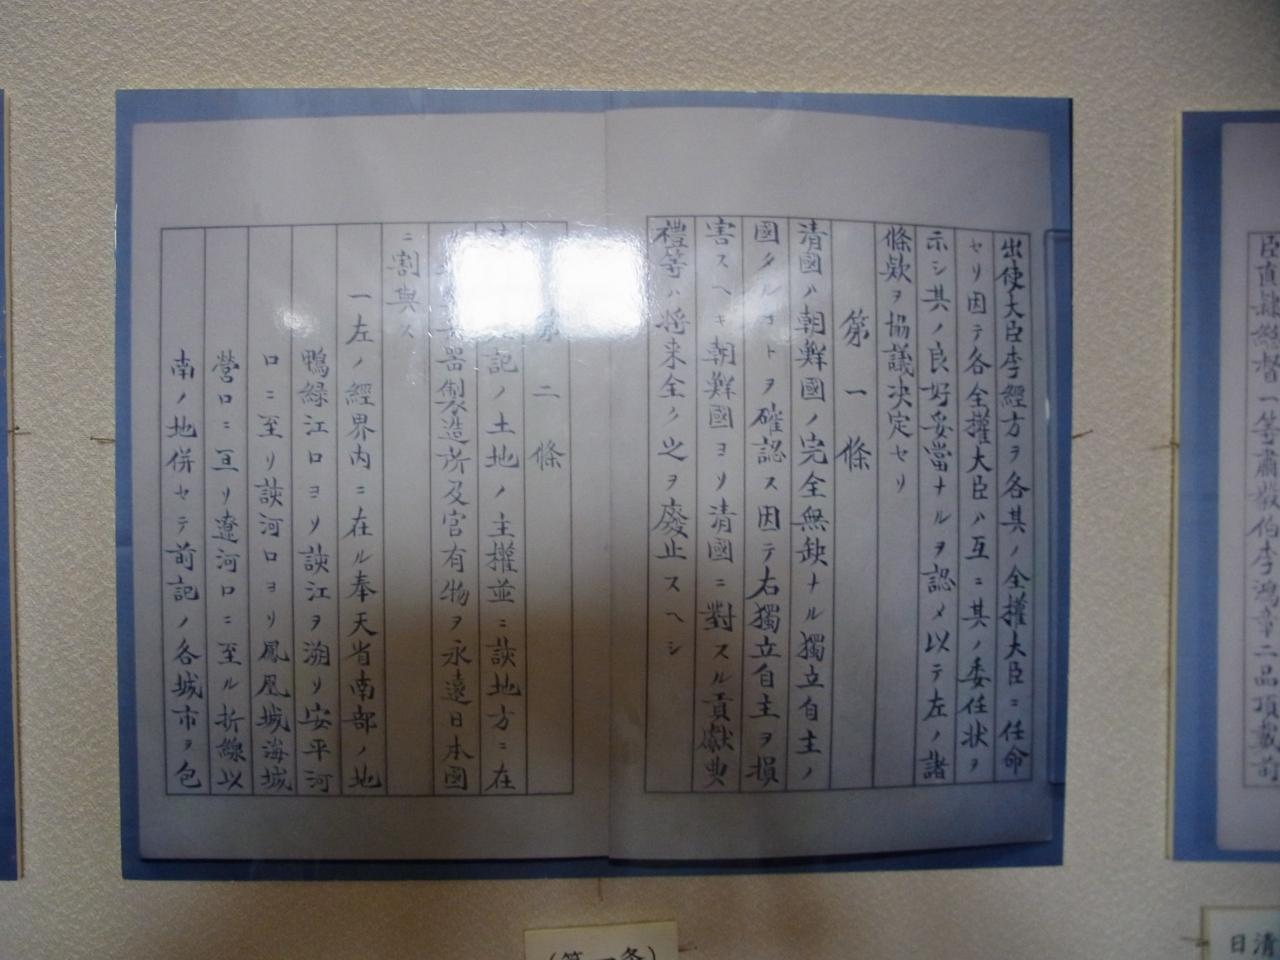 出使大臣李經方ヲ各其ノ全權大臣ニ任命
セリ因テ各全權大臣ハ互ニ其ノ委任状ヲ
示シ其ノ良好妥當ナルヲ認メ以テ左ノ諸
條欵ヲ協議決定セリ
第一條
清國ハ朝鮮國ノ完全無缺ナル獨立自主ノ
國タルコトヲ確認ス因テ右獨立自主ヲ損
害スヘキ朝鮮國ヨリ清國ニ對スル貢獻典
禮等ハ将来全ク之ヲ廢止スヘシ
第二條
記ノ土地ノ主權並ニ該地方ニ在
器製造所及官有物ヲ永遠日本國
ニ割與ス
一左ノ經界内ニ在ル奉天省南部ノ地
鴨緑江口ヨリ該江ヲ溯リ安平河
口ニ至リ該河口ヨリ鳳凰城海城
營口ニ亘リ遼河口ニ至ル折線以
南ノ地併セテ前記ノ各城市ヲ包
臣直隷總督一等肅毅伯李鴻章二品頂戴前
(第一条)
日清